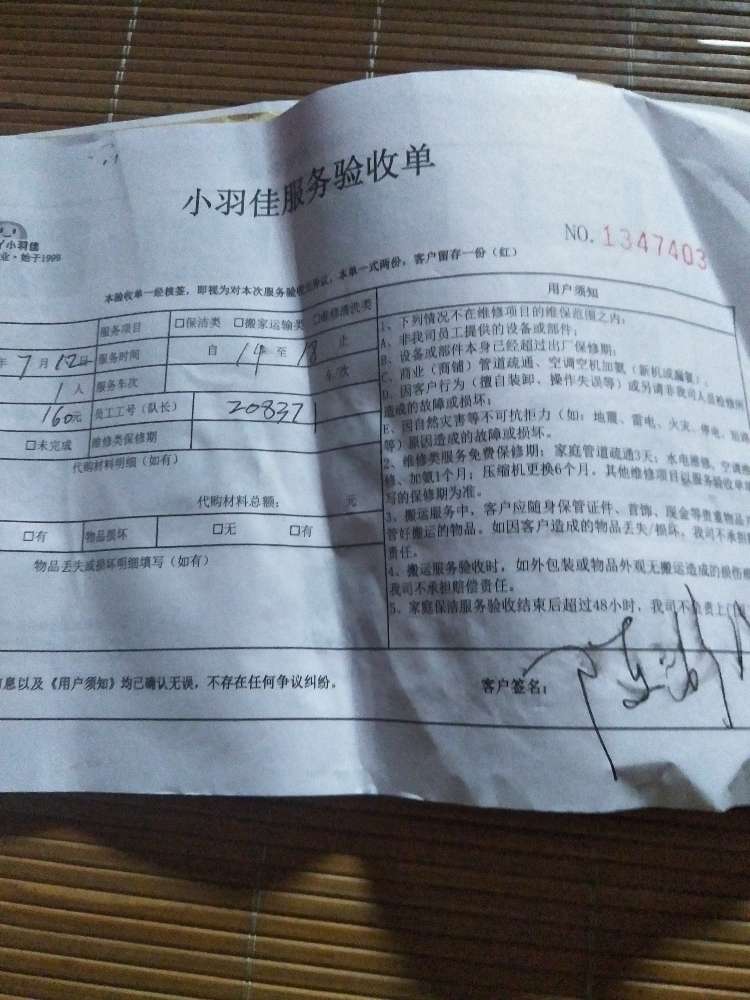 小羽佳服务验收单
丫小羽佳
业·始于1999
NO. 1347403
本验收单一经核签，即视为对本次服务验收无异议，本单一式两份，客户留存一份（红）
服务项目 □保洁类 □搬家运输类 □维修清洗类
年 7 月 12 日 服务时间 自 14 至 18 止
1 人 服务车次 车/次
160元 员工工号（队长） 208371
□未完成 维修类保修期
代购材料明细（如有）
代购材料总额： 元
□有 物品损坏 □无 □有
物品丢失或损坏明细填写（如有）
用户须知
1、下列情况不在维修项目的维保范围之内：
A、非我司员工提供的设备或部件；
B、设备或部件本身已经超过出厂保修期；
C、商业（商铺）管道疏通、空调空机加氟（新机或漏氟）；
D、因客户行为（擅自装卸、操作失误等）或另请非我司人员检修所
造成的故障或损坏；
E、因自然灾害等不可抗拒力（如：地震、雷电、火灾、停电、短路
等）原因造成的故障或损坏。
2、维修类服务免费保修期：家庭管道疏通3天；水电维修、空调维
修、加氨1个月；压缩机更换6个月，其他维修项目以服务验收单填
写的保修期为准。
3、搬运服务中，客户应随身保管证件、首饰、现金等贵重物品
管好搬运的物品。如因客户造成的物品丢失/损坏，我司不承担
责任。
4、搬运服务验收时，如外包装或物品外观无搬运造成的损伤
我司不承担赔偿责任。
5、家庭保洁服务验收结束后超过48小时，我司不负责上门
息以及《用户须知》均已确认无误，不存在任何争议纠纷。
客户签名：